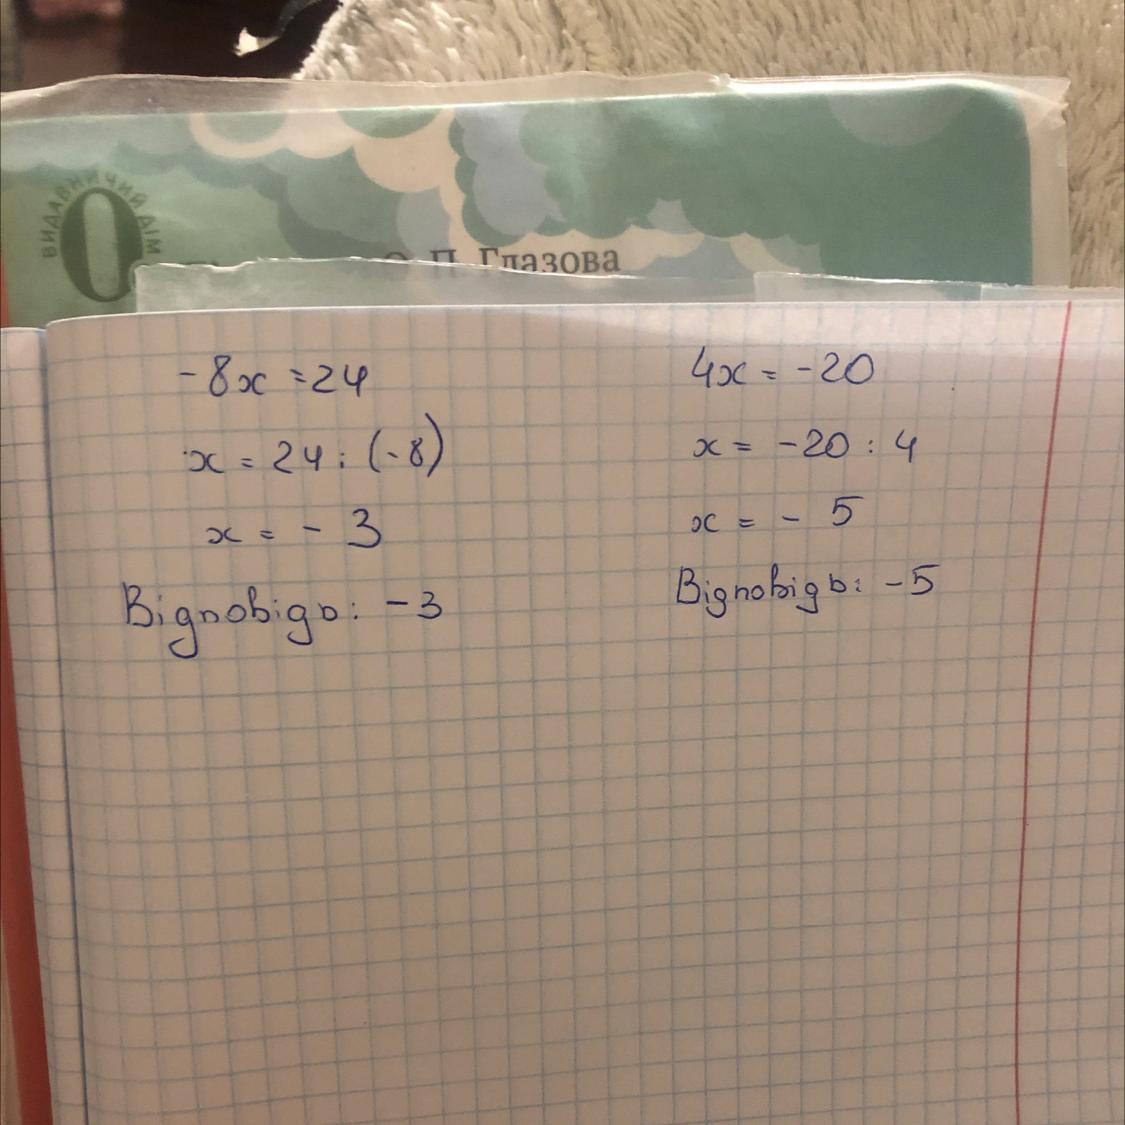 ВИДАВНИЧИЙ ДІМ
О. П. Глазова
-8x = 24
x = 24 : (-8)
x = - 3
Відповідь: -3
4x = -20
x = -20 : 4
x = - 5
Відповідь: -5